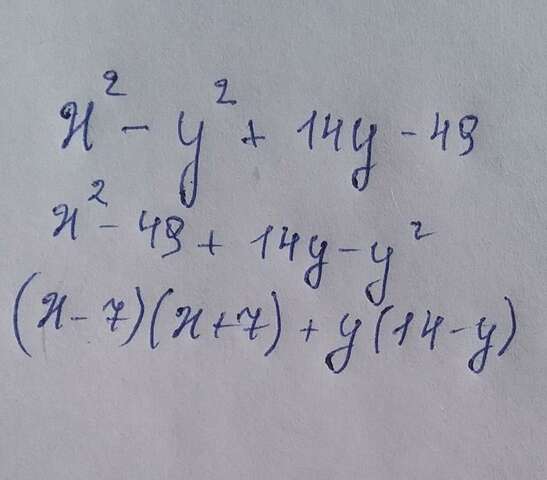 x² - y² + 14y - 49
x² - 49 + 14y - y²
(x - 7)(x + 7) + y(14 - y)